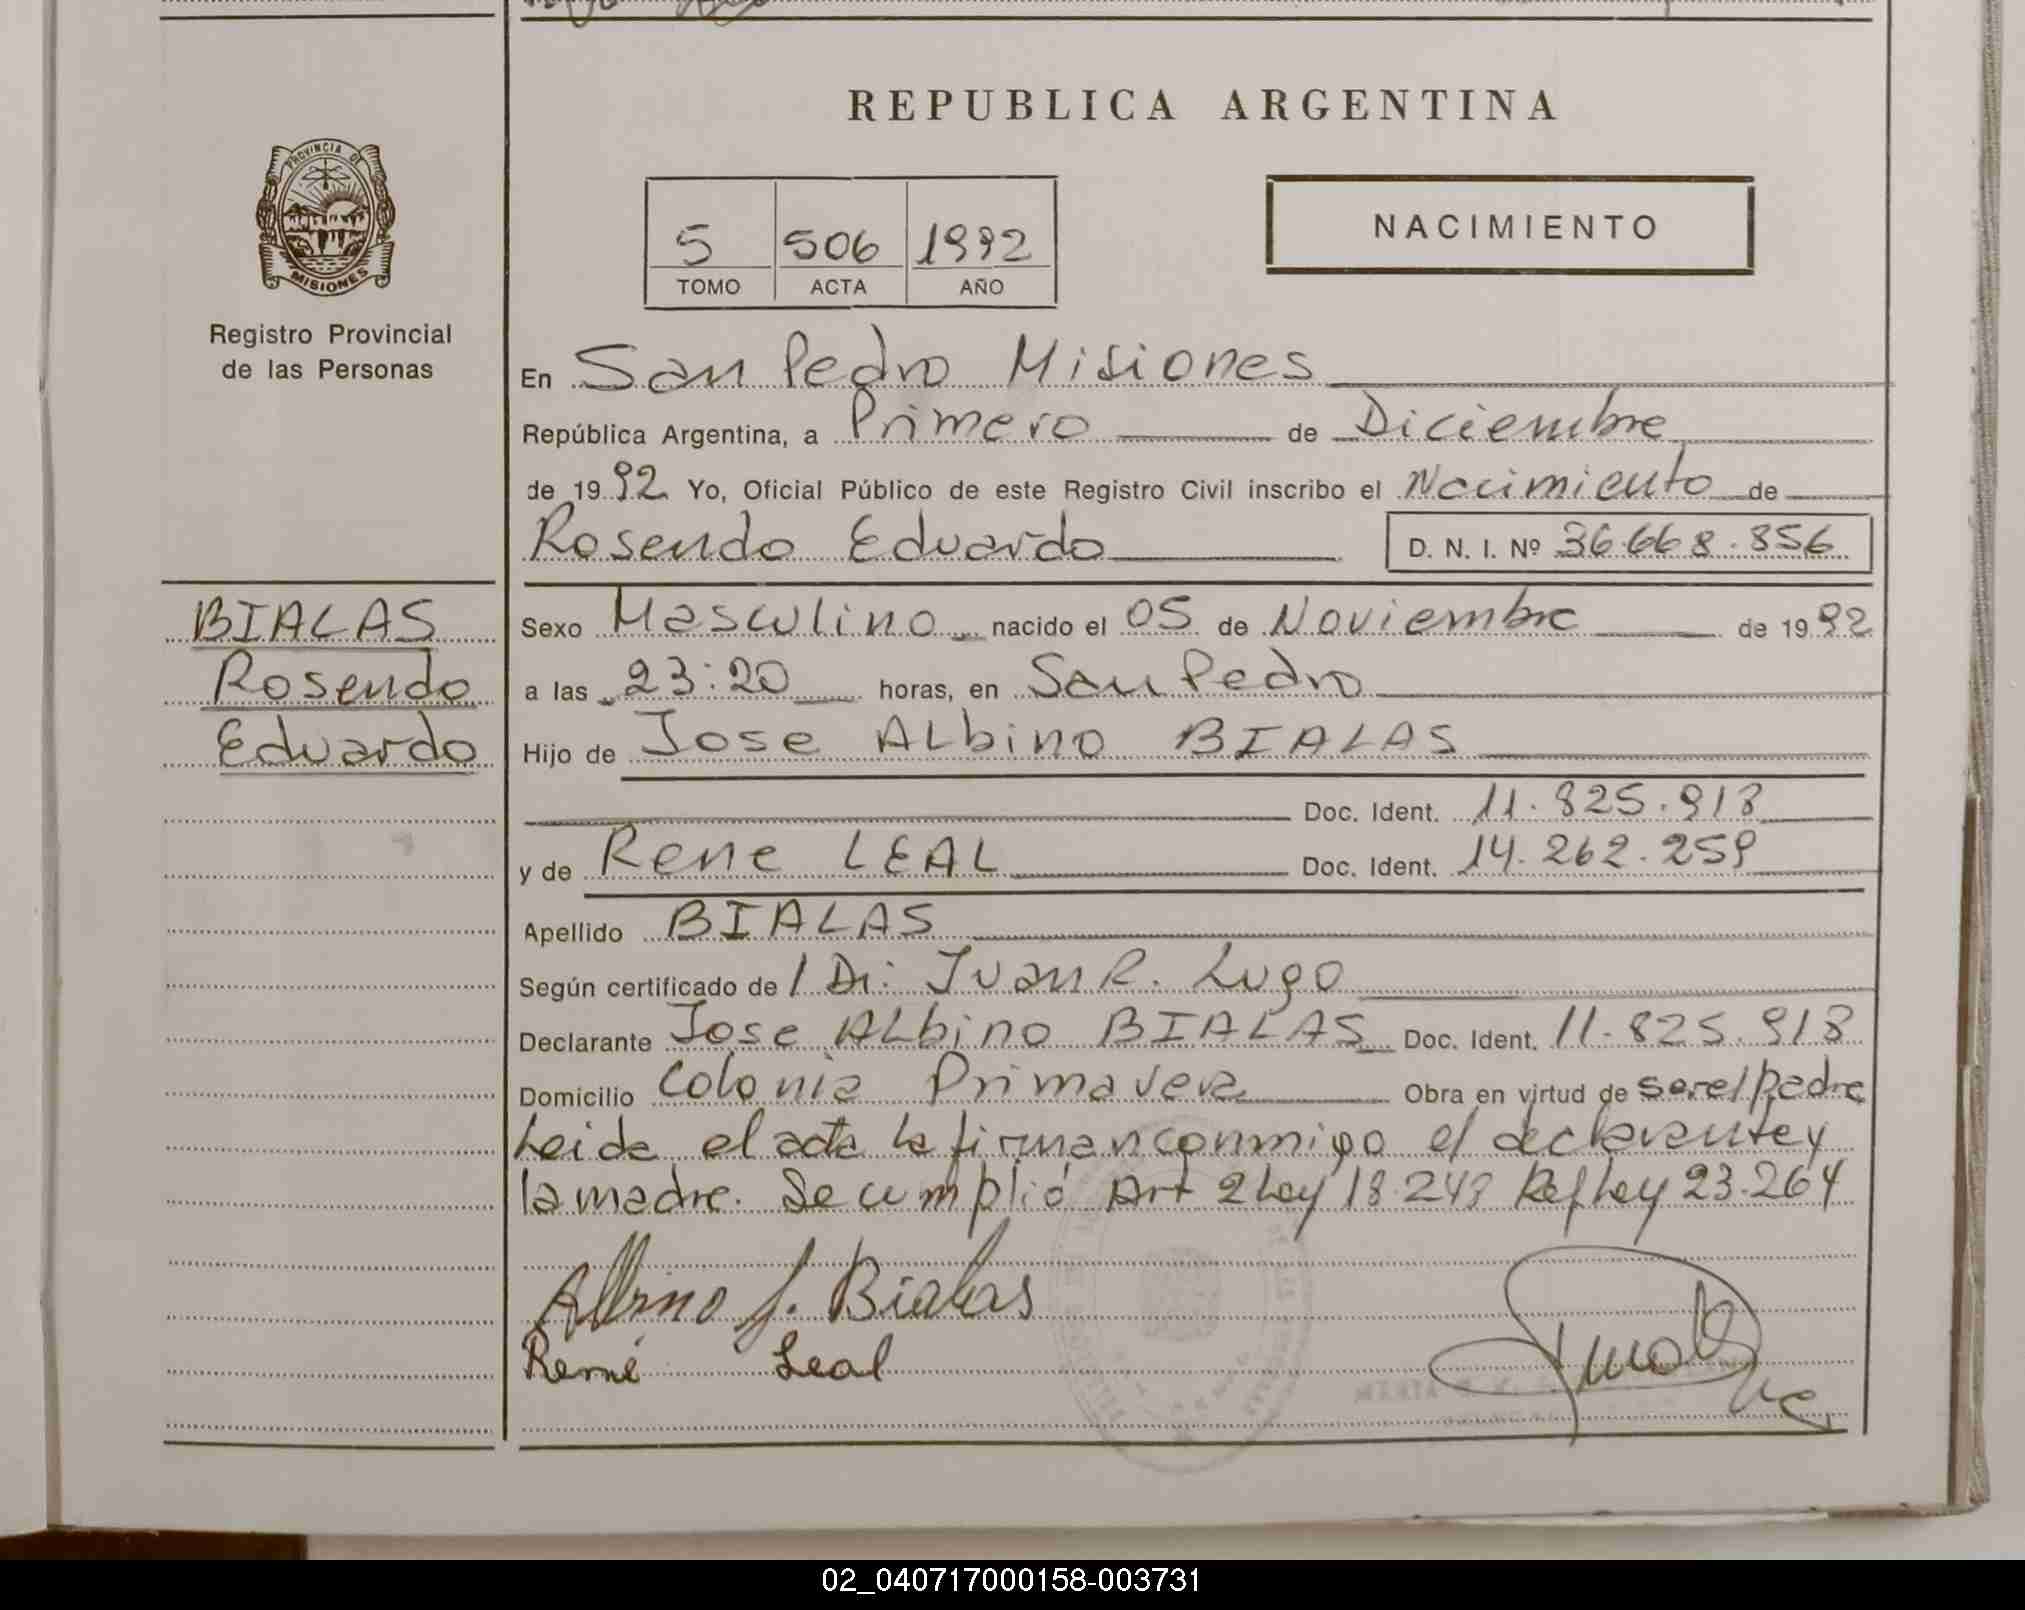 REPUBLICA ARGENTINA
PROVINCIA DE
MISIONES
Registro Provincial
de las Personas
5 506 1992
TOMO ACTA AÑO
NACIMIENTO
En San Pedro Misiones
República Argentina, a Primero de Diciembre
de 1992 Yo, Oficial Público de este Registro Civil inscribo el Nacimiento de
Rosendo Eduardo D. N. I. Nº 36.668.856
BIALAS
Rosendo
Eduardo
Sexo Masculino nacido el 05 de Noviembre de 1992
a las 23:20 horas, en San Pedro
Hijo de Jose ALbino BIALAS
Doc. Ident. 11.825.913
y de Rene LEAL Doc. Ident. 14.262.259
Apellido BIALAS
Según certificado de / Dr: Juan R. Lugo
Declarante Jose ALbino BIALAS Doc. Ident. 11.825.913
Domicilio Colonia Primavera Obra en virtud de ser el padre
Leida el acta la firman conmigo el declarante y
la madre. Se cumplió Art 2 Ley 18.248 Ref Ley 23.264
Albino J. Bialas
René Leal
02_040717000158-003731